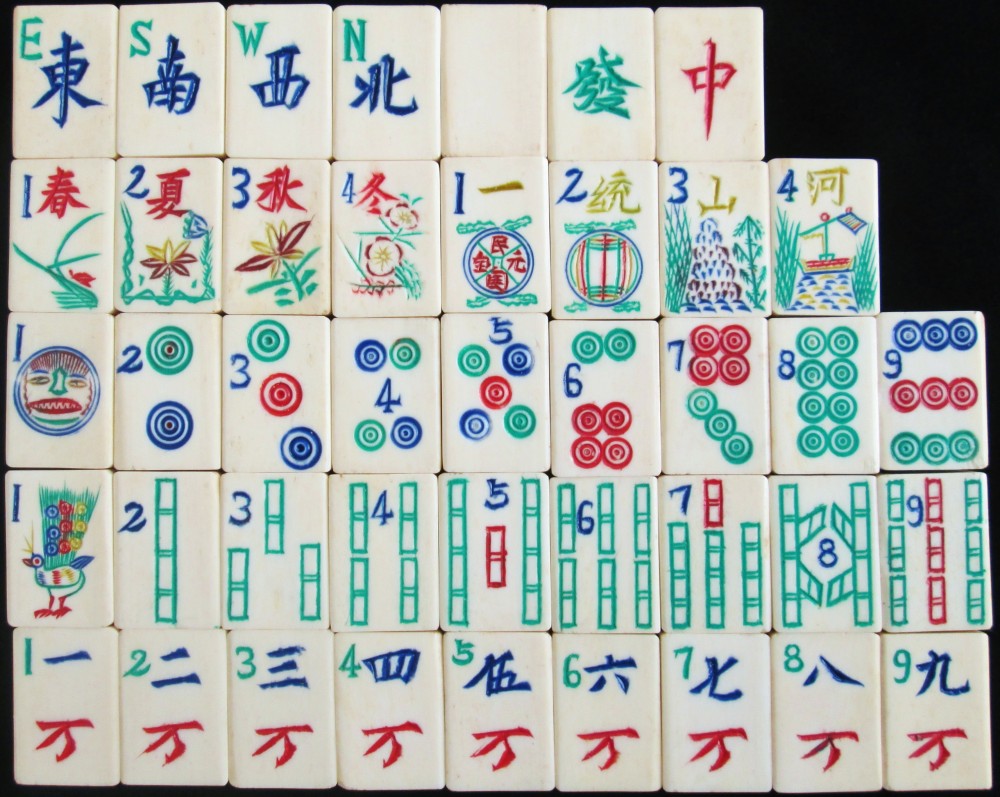 E S W N
東 南 西 北 發 中
1 春 2 夏 3 秋 4 冬 1 一 2 统 3 山 4 河
民
元
1 2 3 4 5 6 7 8 9
1 2 3 4 5 6 7 8 9
1 一 2 二 3 三 4 四 5 伍 6 六 7 七 8 八 9 九
万 万 万 万 万 万 万 万 万